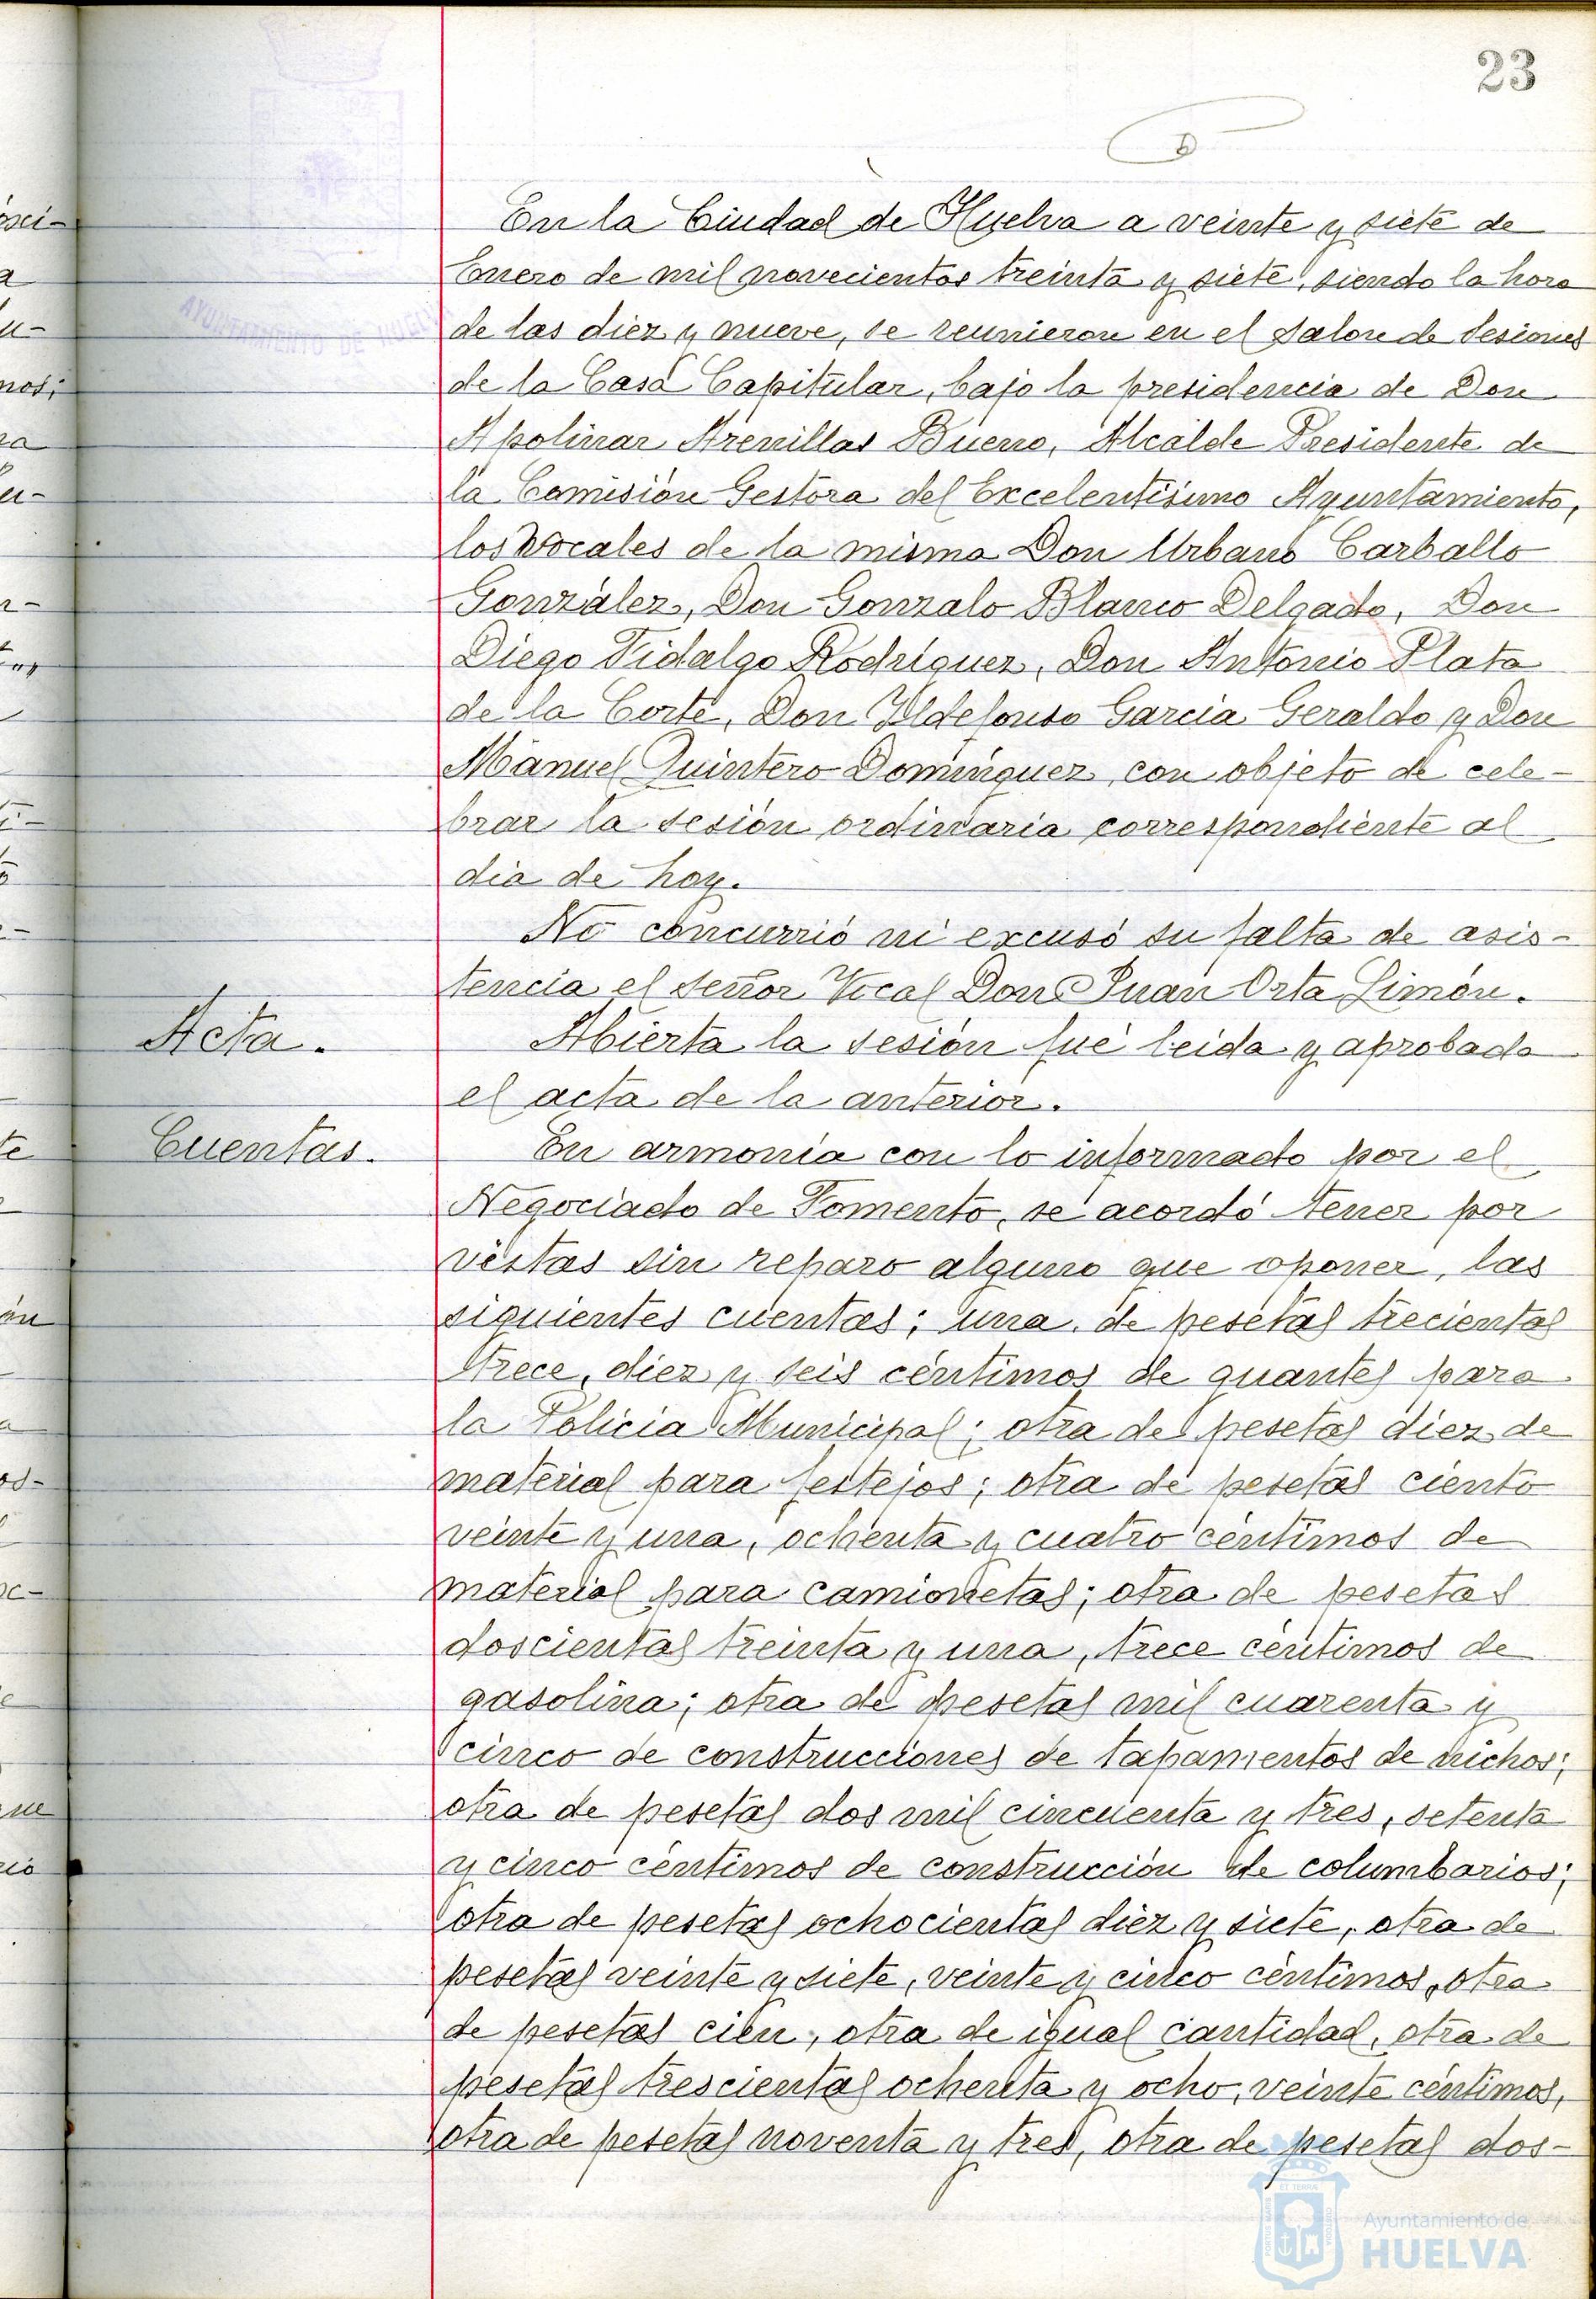 23
En la Ciudad de Huelva a veinte y siete de
Enero de mil novecientos treinta y siete, siendo la hora
de las diez y nueve, se reunieron en el Salon de Sesiones
de la Casa Capitular, bajo la presidencia de Don
Apolinar Arenillas Bueno, Alcalde Presidente de
la Comisión Gestora del Excelentisimo Ayuntamiento,
los Vocales de la misma Don Urbano Carballo
González, Don Gonzalo Blanco Delgado, Don
Diego Fidalgo Rodriguez, Don Antonio Plata
de la Corte, Don Ildefonso Garcia Geraldo y Don
Manuel Quintero Dominguez, con objeto de cele-
brar la sesión ordinaria correspondiente al
dia de hoy.
No concurrió ni excusó su falta de asis-
tencia el señor Vocal Don Juan Orta Simón.
Acta.
Abierta la sesión fué leida y aprobada
el acta de la anterior.
Cuentas.
En armonia con lo informado por el
Negociado de Fomento, se acordó tener por
vistas sin reparo alguno que oponer, las
siguientes cuentas; una de pesetas trecientas
trece, diez y seis céntimos de guantes para
la Policia Municipal; otra de pesetas diez de
material para festejos; otra de pesetas ciento
veinte y una, ochenta y cuatro céntimos de
material para camionetas; otra de pesetas
doscientas treinta y una, trece céntimos de
gasolina; otra de pesetas mil cuarenta y
cinco de construcciones de tapamentos de nichos;
otra de pesetas dos mil cincuenta y tres, setenta
y cinco céntimos de construcción de columbarios;
otra de pesetas ochocientas diez y siete, otra de
pesetas veinte y siete, veinte y cinco céntimos, otra
de pesetas cien, otra de igual cantidad, otra de
pesetas trescientas ochenta y ocho, veinte céntimos,
otra de pesetas noventa y tres, otra de pesetas dos-
AYUNTAMIENTO DE HUELVA
Ayuntamiento de
HUELVA